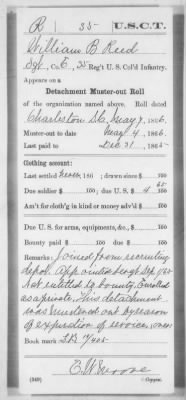 R 35 U.S.C.T.
William B Reed
Sgt, Co. E, 35 Reg't U. S. Col'd Infantry.
Appears on a
Detachment Muster-out Roll
of the organization named above. Roll dated
Charleston S.C. May 7, 1866.
Muster-out to date May 4, 1866.
Last paid to Dec. 31, 1865
Clothing account:
Last settled never, 186 ; drawn since $ 100
Due soldier $ 100; due U. S. $ 4
Am't for cloth'g in kind or money adv'd $ 100
Due U. S. for arms, equipments, &c., $ 100
Bounty paid $ 100; due $ 100
Remarks: Joined from recruiting
depot. Appointed Sergt Sep 1/65
Not entitled to bounty. Enrolled
as a private. This detachment
was mustered out by reason
of expiration of service,
Book mark:
(349)
Copyist.